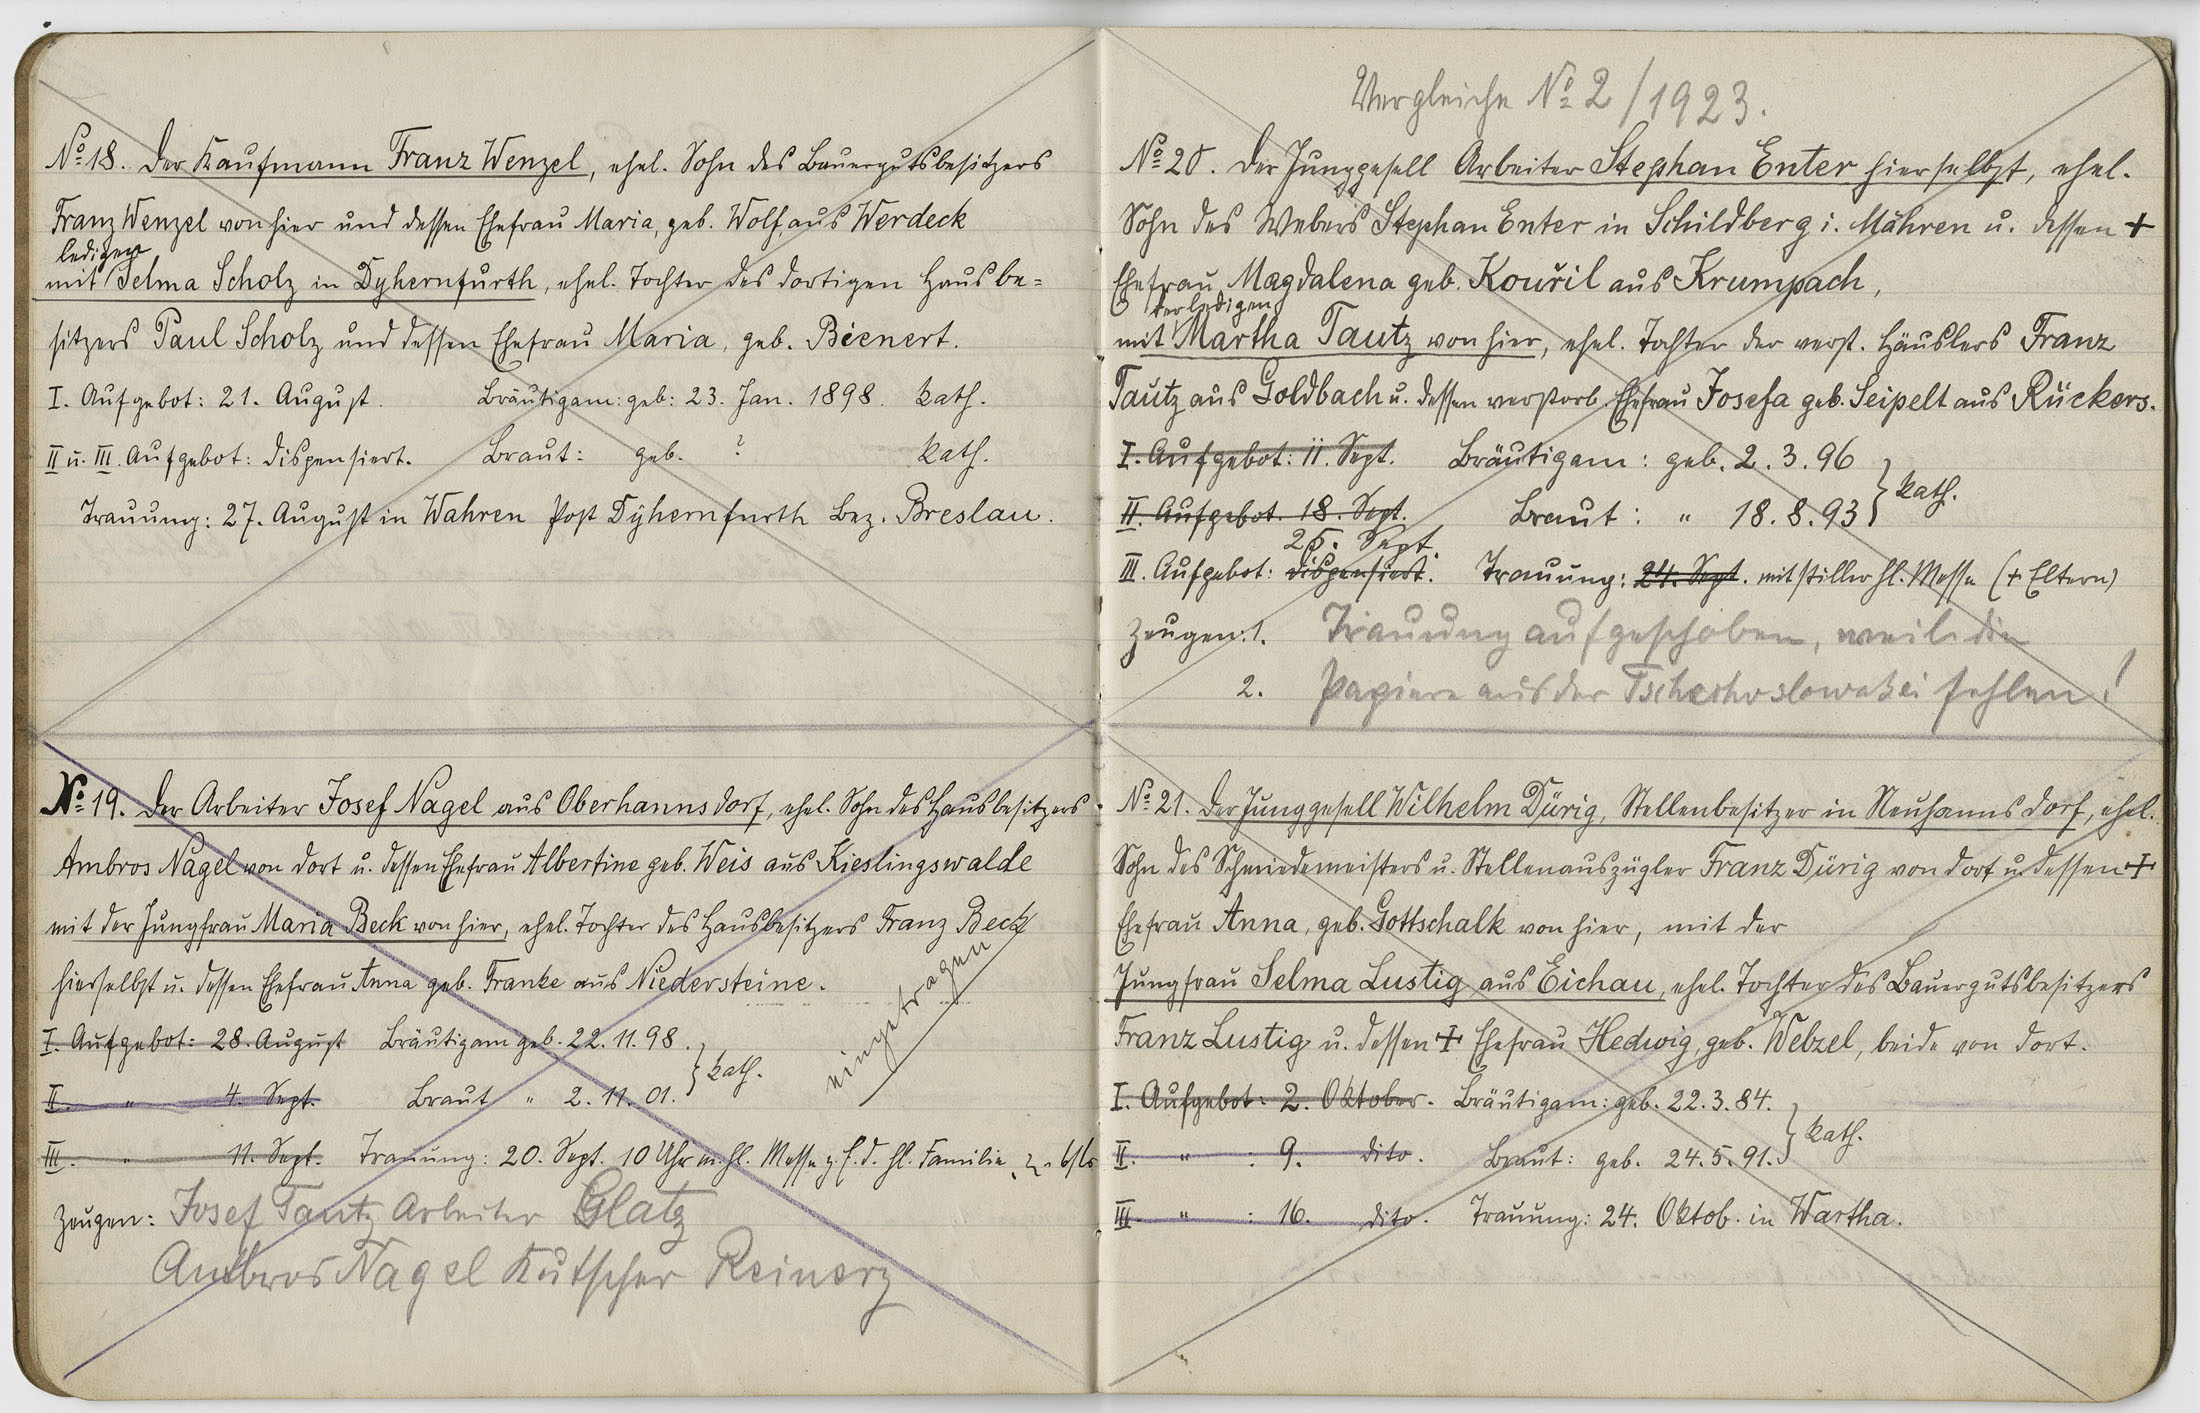 No 18. Der Kaufmann Franz Wenzel, ehel. Sohn des Bauergutsbesitzers
Franz Wenzel von hier und dessen Ehefrau Maria, geb. Wolf, aus Werdeck
ledigen
mit Selma Scholz in Dyhernfurth, ehel. Tochter des dortigen Hausbe=
sitzers Paul Scholz und dessen Ehefrau Maria, geb. Bienert.
I. Aufgebot: 21. August. Bräutigam: geb: 23. Jan. 1898. kath.
II u. III. Aufgebot: dispensiert. Braut: geb. ? kath.
Trauung: 27. August in Wahren Post Dyhernfurth Bez. Breslau.
No 19. Der Arbeiter Josef Nagel aus Oberhannsdorf, ehel. Sohn des Hausbesitzers
Ambros Nagel von dort u. dessen Ehefrau Albertine geb. Weis aus Kieslingswalde
mit der Jungfrau Maria Beck von hier, ehel. Tochter des Hausbesitzers Franz Beck
hierselbst u. dessen Ehefrau Anna geb. Franke aus Niedersteine.
eingetragen
I. Aufgebot: 28. August Bräutigam geb. 22.11.98.
II. " 4. Sept. Braut " 2.11.01. } kath.
III. " 11. Sept. Trauung: 20. Sept. 10 Uhr m. hl. Messe z. E. d. hl. Familie
Zeugen: Josef Tautz Arbeiter Glatz
Ambros Nagel Kutscher Reinerz
Vergleiche No 2/1923.
No 20. Der Junggesell Arbeiter Stephan Enter hierselbst, ehel.
Sohn des Webers Stephan Enter in Schildberg i. Mähren u. dessen +
Ehefrau Magdalena geb. Kouřil aus Krumpach,
der ledigen
mit Martha Tautz von hier, ehel. Tochter der verst. Häuslers Franz
Tautz aus Goldbach u. dessen verstorb. Ehefrau Josefa geb. Seipelt aus Rückers.
I. Aufgebot: 11. Sept. Bräutigam: geb. 2.3.96
II. Aufgebot. 18. Sept. Braut: " 18.8.93 } kath.
25. Sept.
III. Aufgebot: dispensiert. Trauung: 24. Sept. mit stiller hl. Messe (+ Eltern)
Zeugen: 1. Trauung aufgeschoben, weil die
2. Papiere aus der Tschechoslowakei fehlen!
No 21. Der Junggesell Wilhelm Dürig, Stellenbesitzer in Neuhannsdorf, ehel.
Sohn des Schmiedemeisters u. Stellenauszügler Franz Dürig von dort u. dessen +
Ehefrau Anna, geb. Gottschalk von hier, mit der
Jungfrau Selma Lustig aus Eichau, ehel. Tochter des Bauergutsbesitzers
Franz Lustig u. dessen + Ehefrau Hedwig, geb. Welzel, beide von dort.
I. Aufgebot: 2. Oktober. Bräutigam: geb. 22.3.84.
II. " : 9. dito. Braut: geb. 24.5.91. } kath.
III. " : 16. dito. Trauung: 24. Oktob. in Wartha.